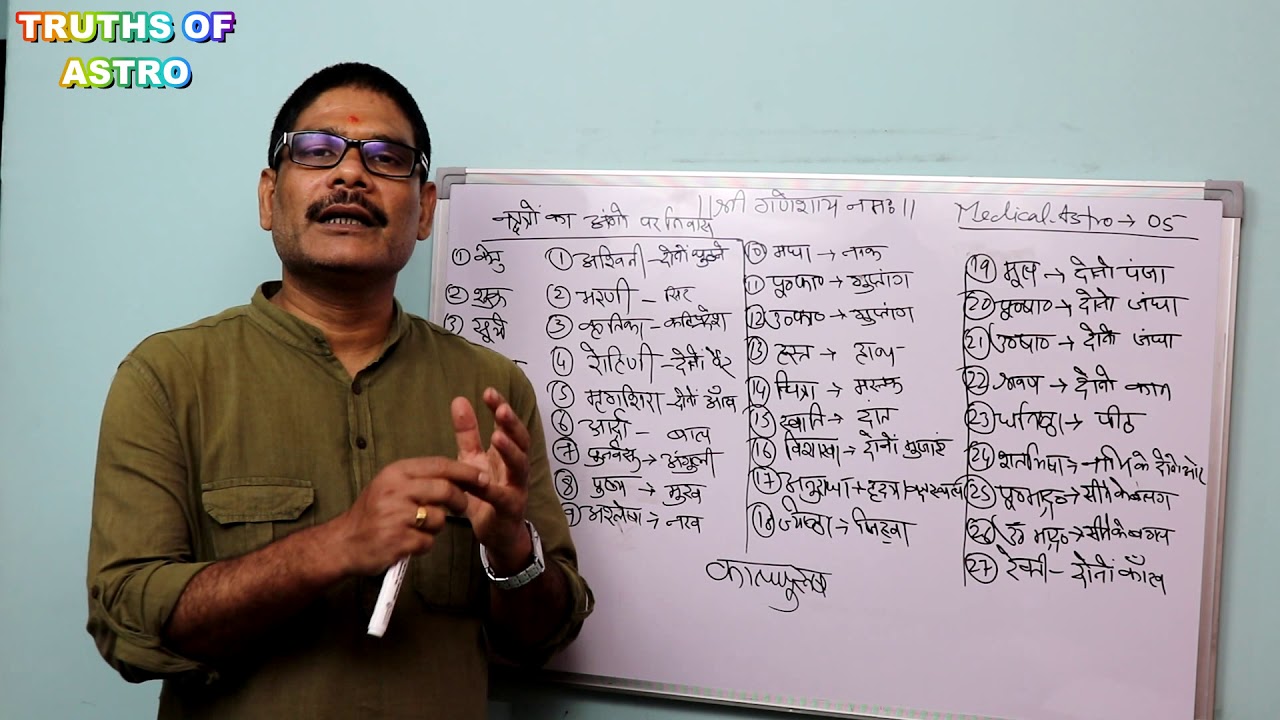 TRUTHS OF
ASTRO
||श्री गणेशाय नमः||
Medical Astro → 05
नक्षत्रों का अंगो पर निवास
① केतु
② शुक्र
③ सूर्य
① अश्विनी – दोनों घुटने
② भरणी – सिर
③ कृतिका – कटिप्रदेश
④ रोहिणी – दोनों पैर
⑤ मृगशिरा – दोनों आँख
⑥ आर्द्रा – बाल
⑦ पुनर्वसु → अंगुली
⑧ पुष्य → मुख
⑨ अश्लेषा → नख
⑩ मघा → नाक
⑪ पू०फा० → गुप्तांग
⑫ उ०फा० → गुप्तांग
⑬ हस्त → हाथ
⑭ चित्रा → मस्तक
⑮ स्वाति → दांत
⑯ विशाखा → दोनों भुजाएं
⑰ अनुराधा → हृदय वक्षस्थल
⑱ ज्येष्ठा → जिह्वा
⑲ मूल → दोनो पंजा
⑳ पू०षा० → दोनो जंघा
㉑ उ०षा० → दोनो जंघा
㉒ श्रवण → दोनो कान
㉓ धनिष्ठा → पीठ
㉔ शतभिषा → के दोनो ओर
㉕ पू०भाद्र० → सीने के बगल
㉖ उ० भाद्र० → सीने के बगल
㉗ रेवती – दोनों काँख
कालपुरुष